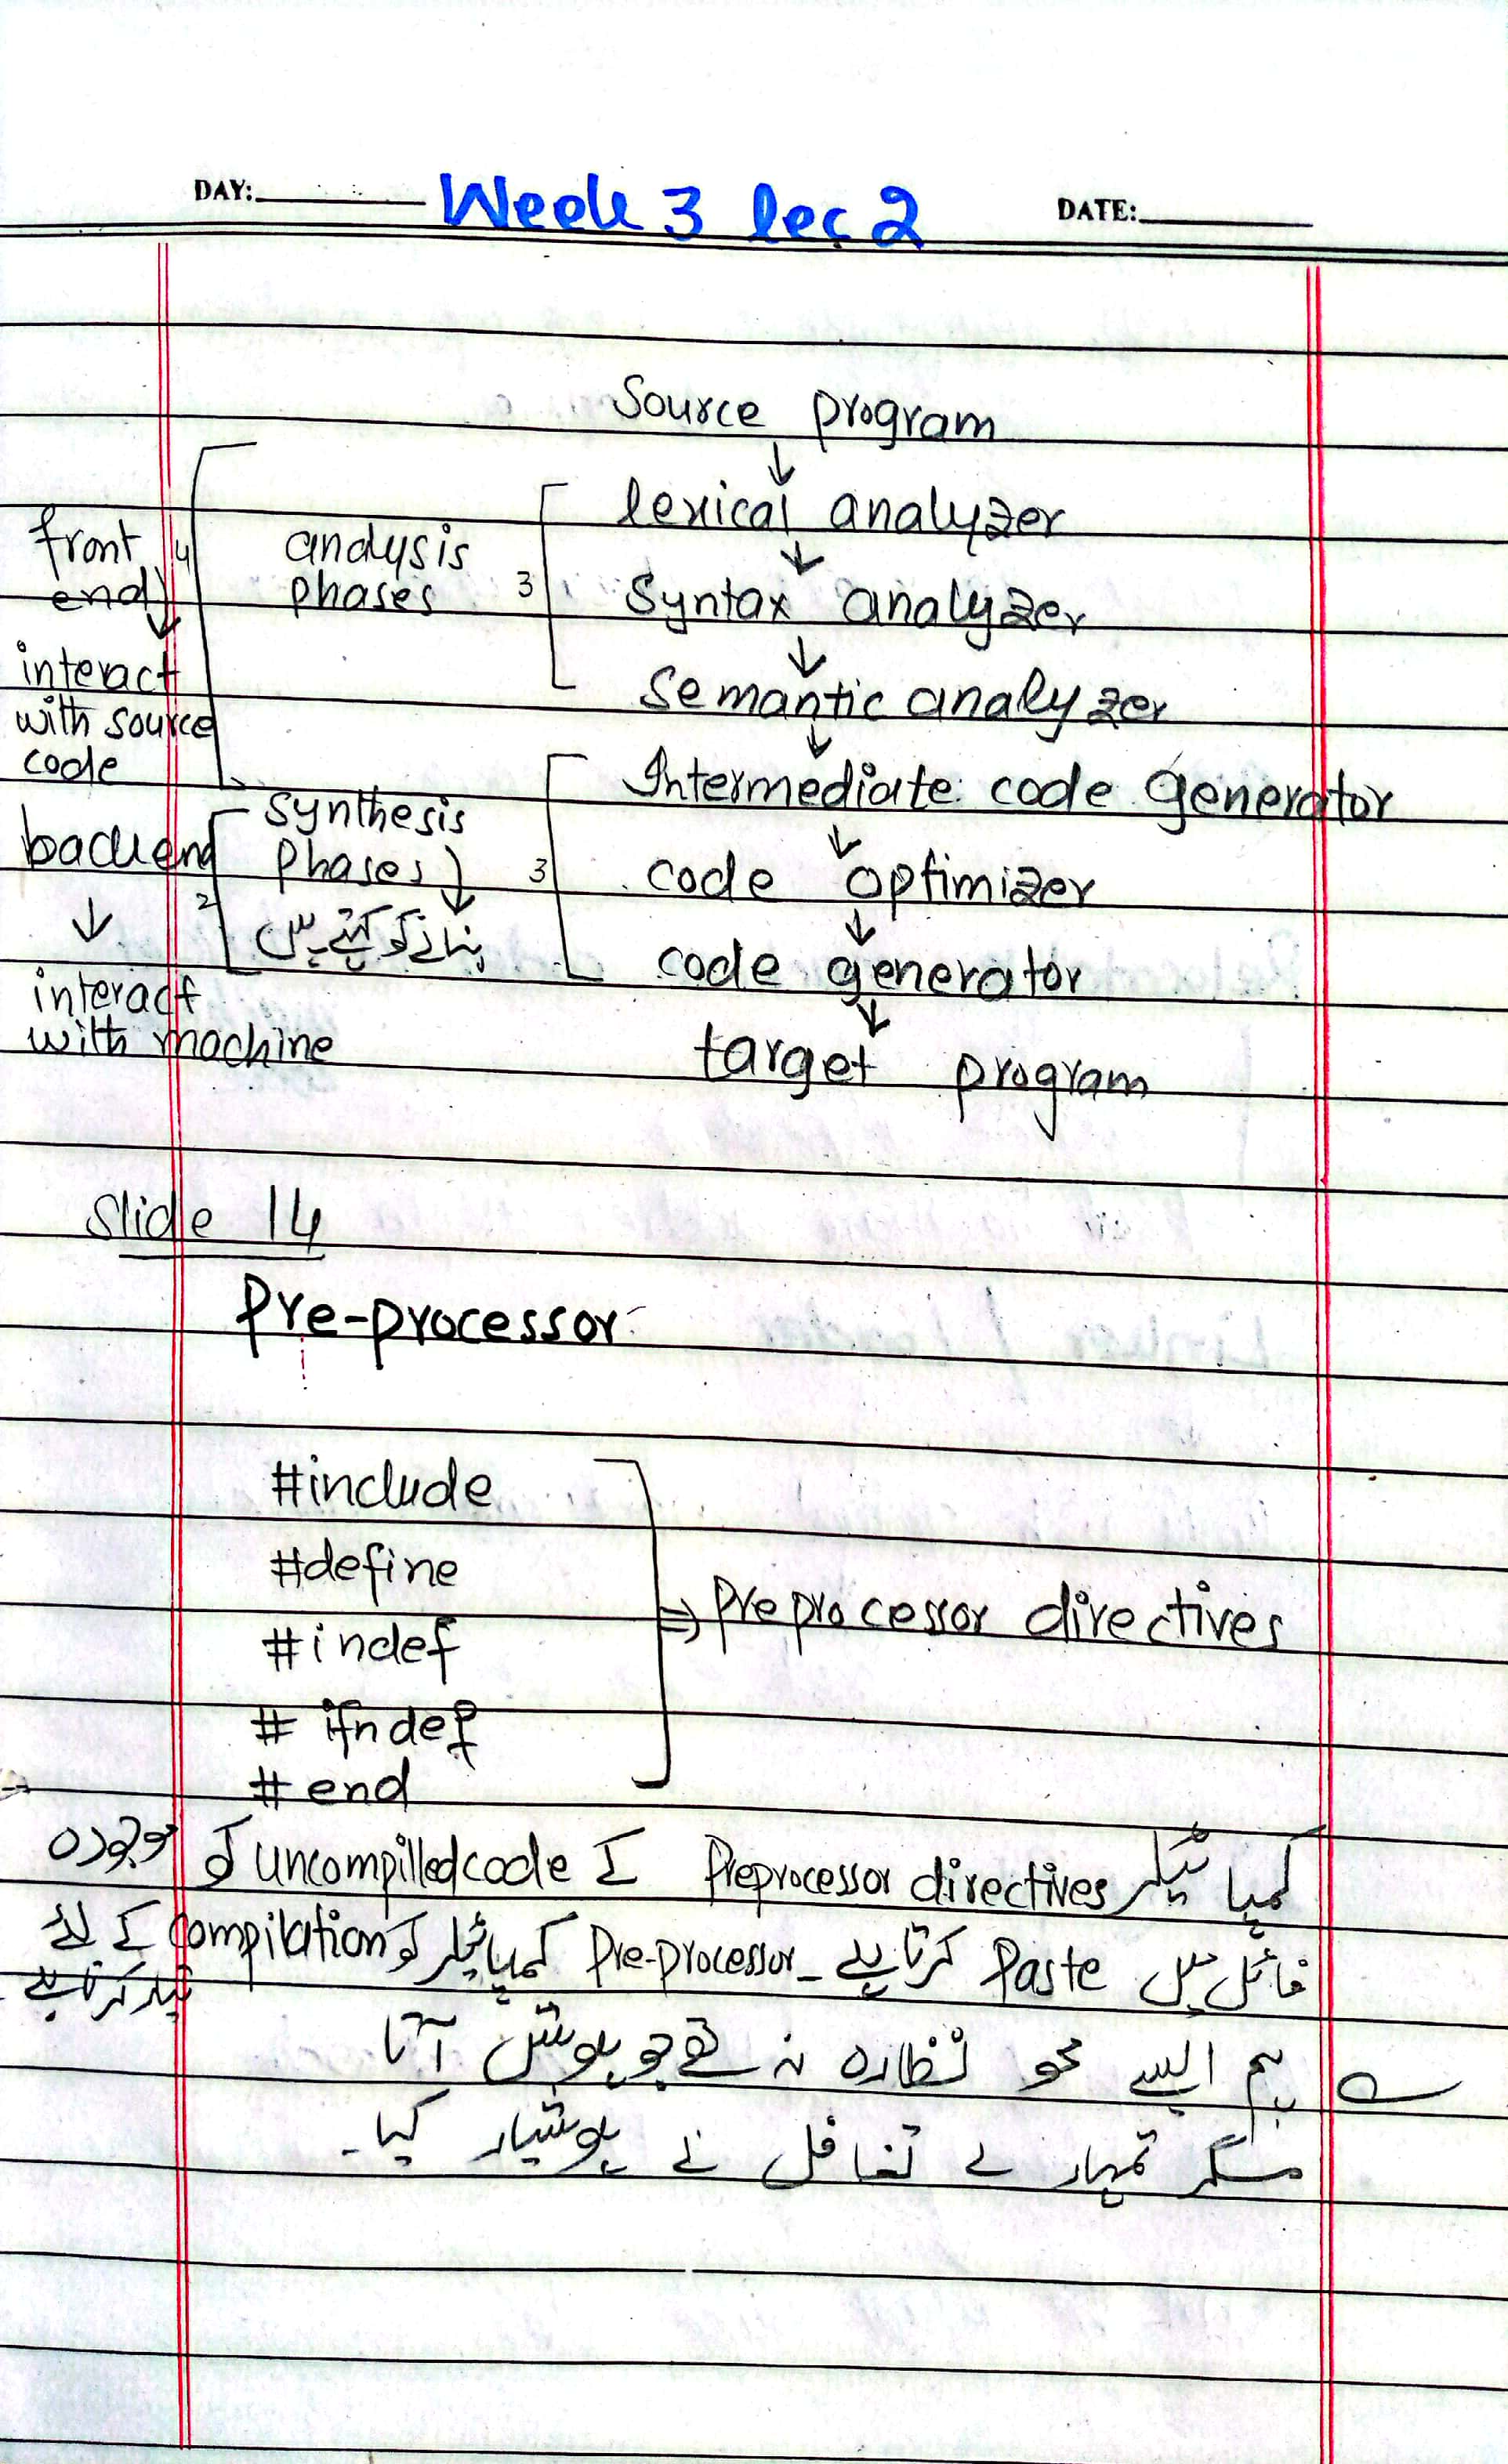 DAY: Week 3 lec 2 DATE:
Source program
↓
lexical analyzer
↓
Syntax analyzer
↓
Semantic analyzer
↓
Intermediate code generator
↓
code optimizer
↓
code generator
↓
target program
analysis
phases 3
front 4
end
↓
interact
with source
code
synthesis
phases 3
↓
بنانے کو کہتے ہیں
backend 2
↓
interact
with machine
Slide 14
Pre-processor
#include
#define
#indef
# ifndef
# end
⇒ Preprocessor directives
کمپائیلر Preprocessor directives کے uncompilledcode کو موجودہ
فائل میں Paste کرتا ہے۔ Pre-processor کمپائیلر کو compilation کے لئے
تیار کرتا ہے
ہم ایسے محو نظارہ نہ تھے جو ہوش آتا
مگر تمہارے تغافل نے ہوشیار کیا۔